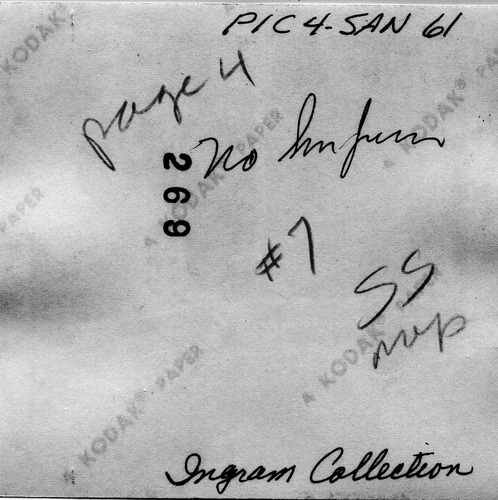 PIC 4-SAN 61
page 4
A KODAK PAPER
KODAK
A KODAK® PAPER
No
269
PAPER
#7
SS
A KODAK PAPER
A KODAK® PAPER
Ingram Collection